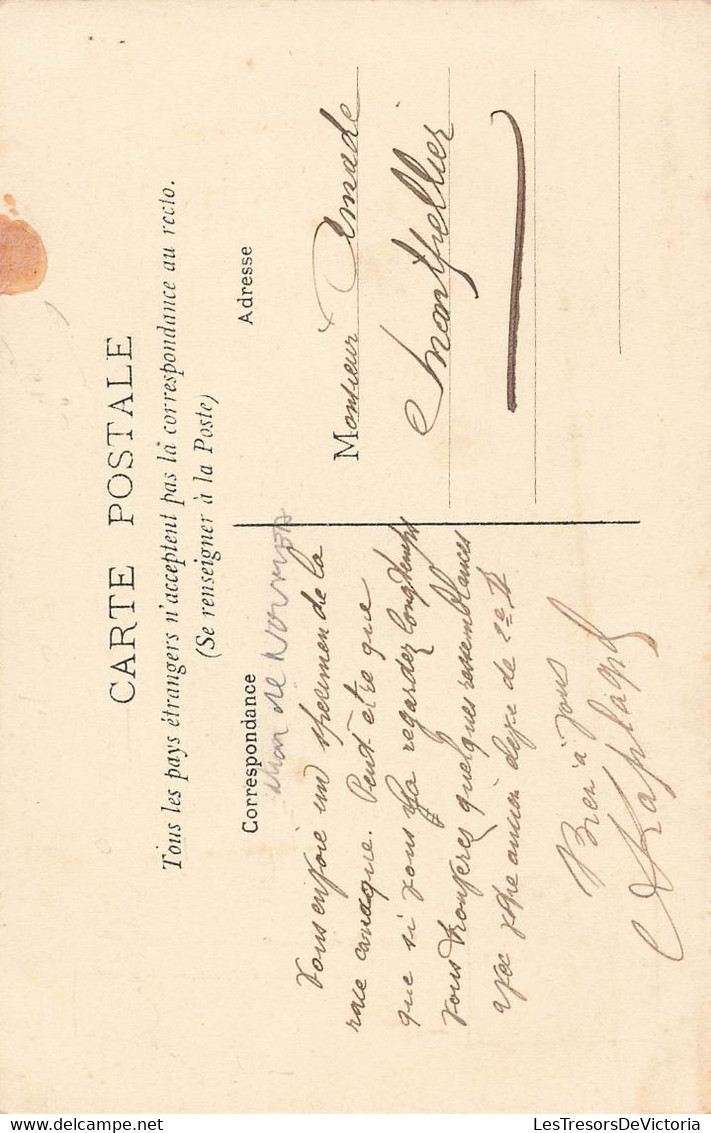 CARTE POSTALE
Tous les pays étrangers n'acceptent pas la correspondance au recto.
(Se renseigner à la Poste)
Correspondance
Adresse
Vous envoie un specimen de la
race canaque. Peut être que
que si vous la regardez longtemps
vous trouverez quelques ressemblances
avec votre ancien de 2e
Bien à vous
Monsieur Amade
Montpellier
delcampe.net
LesTresorsDeVictoria